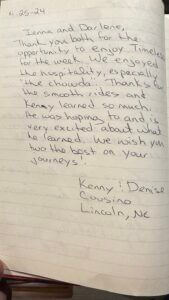 6-25-24
Ienna and Darlene,
Thank you both for the
opportunity to enjoy Timeless
for the week. We enjoyed
the hospitality, especially
the chowda. Thanks for
the smooth rides and
Kenny learned so much.
He was hoping to and is
very excited about what
he learned. We wish you
two the best on your
journeys!!
Kenny & Denise
Cousino
Lincoln, NE